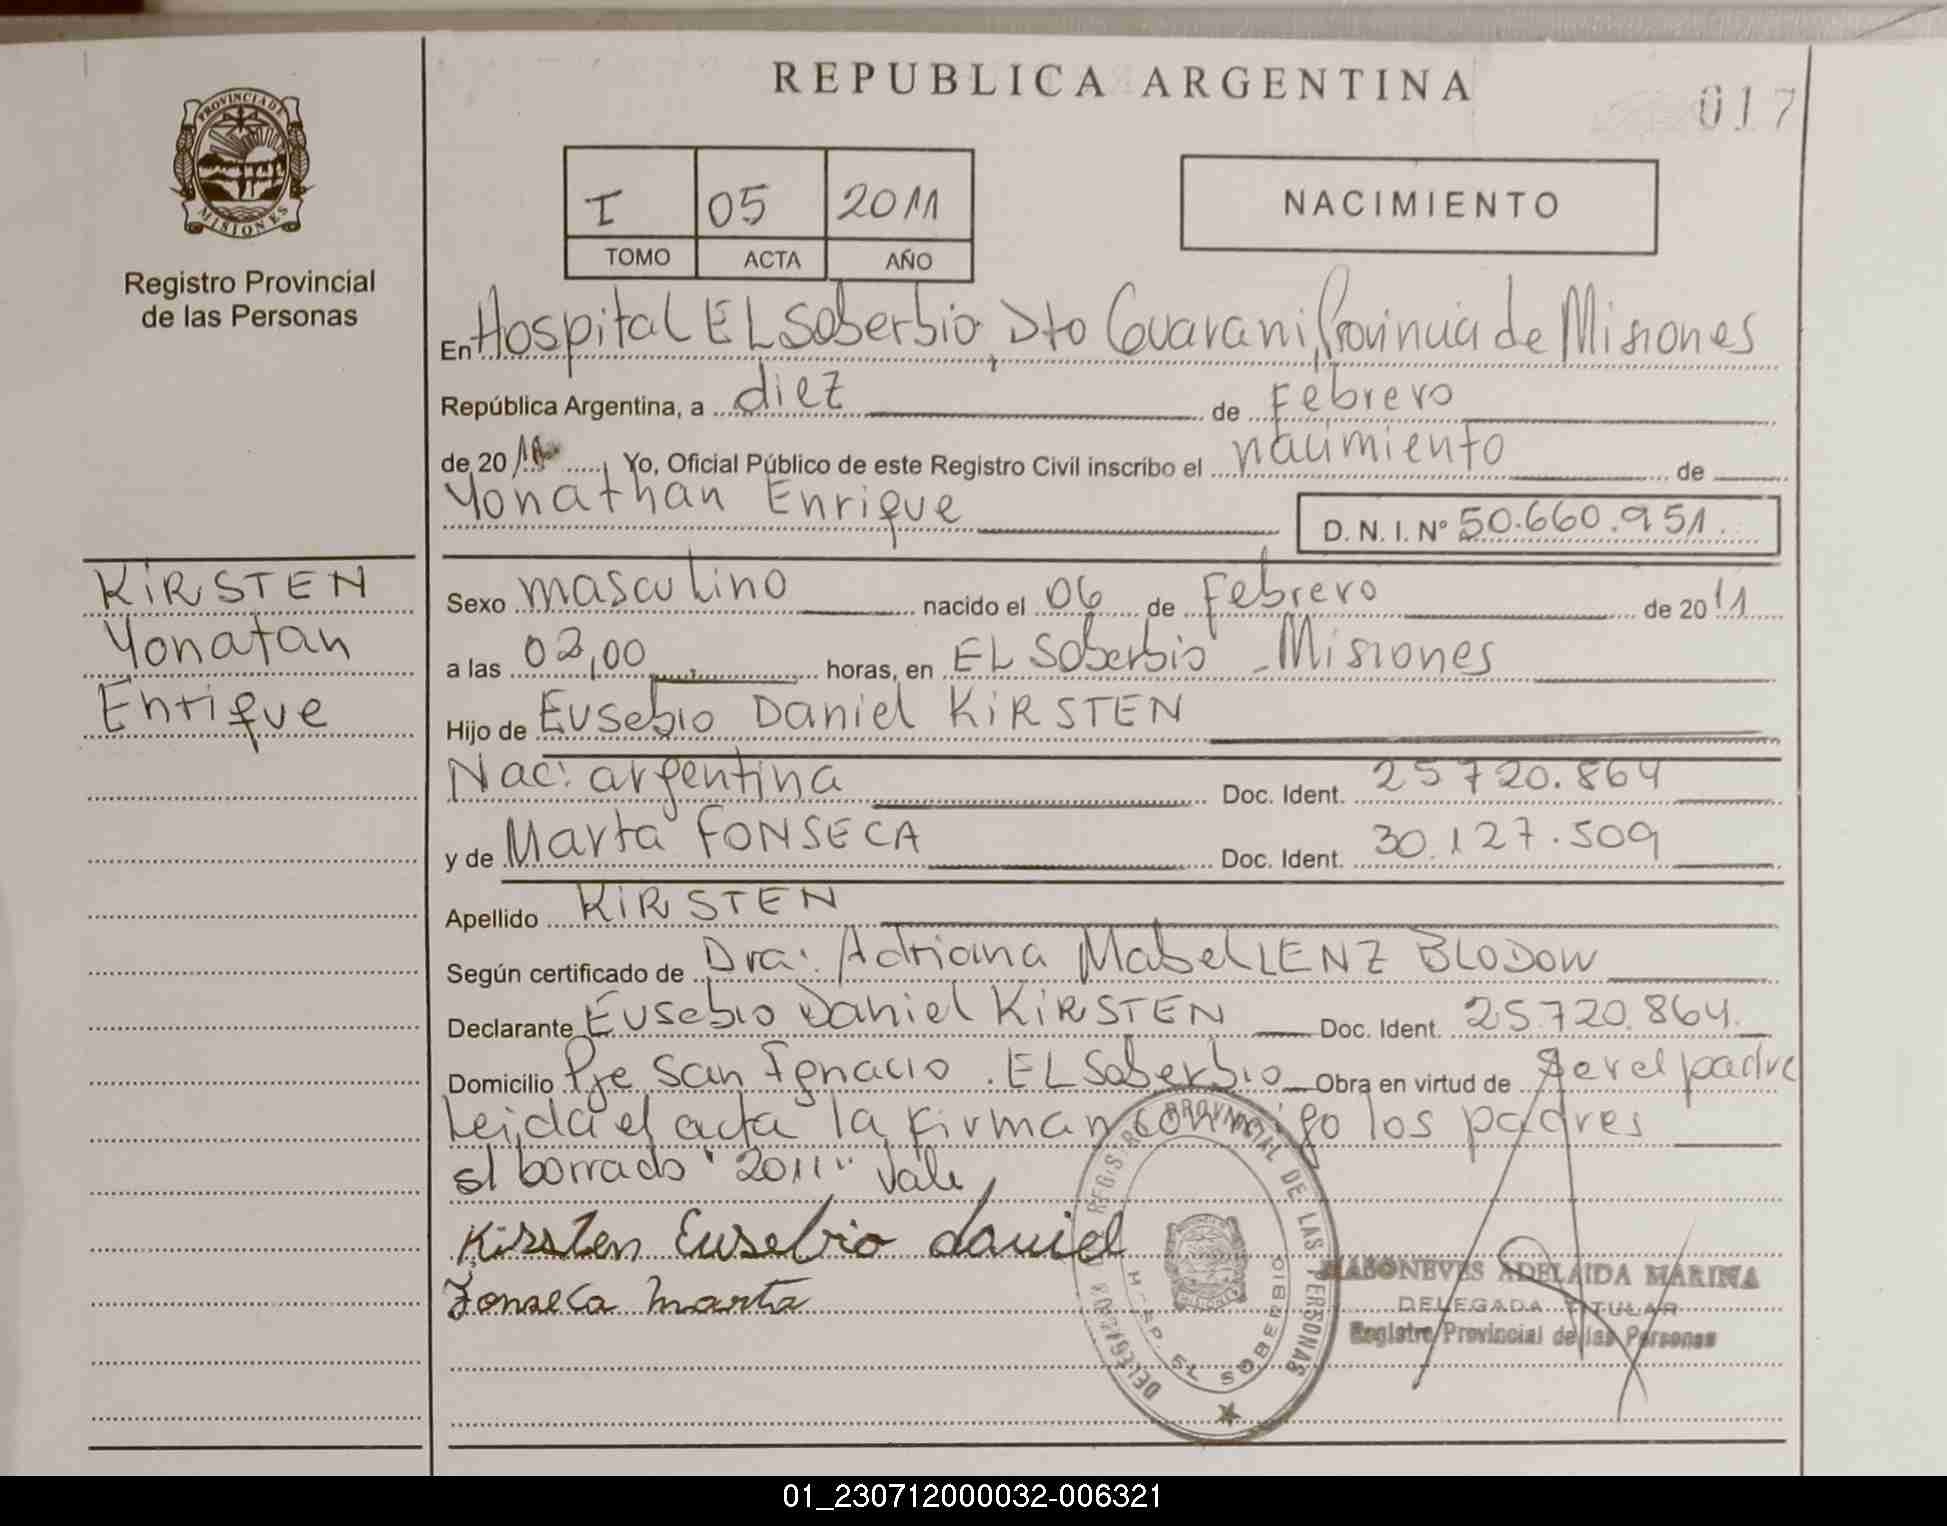 REPUBLICA ARGENTINA
017
PROVINCIA DE
MISIONES
Registro Provincial
de las Personas
I 05 2011
TOMO ACTA AÑO
NACIMIENTO
En Hospital EL Soberbio, Dto Guarani, Provincia de Misiones
República Argentina, a diez de Febrero
de 2011, Yo, Oficial Público de este Registro Civil inscribo el nacimiento de
Yonathan Enrique D. N. I. Nº 50.660.951.
KiRSTEN
Yonatan
Enrique
Sexo masculino nacido el 06 de Febrero de 2011
a las 03,00 horas, en EL Soberbio - Misiones
Hijo de Eusebio Daniel KiRSTEN
Nac: argentina Doc. Ident. 25720.864
y de Marta FONSECA Doc. Ident. 30.127.509
Apellido KiRSTEN
Según certificado de Dra: Adriana Mabel LENZ BLODOW
Declarante Eusebio Daniel KiRSTEN Doc. Ident. 25.720.864.
Domicilio Pje San Ignacio. EL Soberbio Obra en virtud de ser el padre
Leida el acta la firman conmigo los padres
s/ borrado "2011" Vale
Kirsten Eusebio daniel
Fonseca Marta
DELEGACION REGISTRO PROVINCIAL DE LAS PERSONAS
HOSP. EL SOBERBIO
MABONEVES ADELAIDA MARINA
DELEGADA TITULAR
Registro Provincial de las Personas
01_230712000032-006321